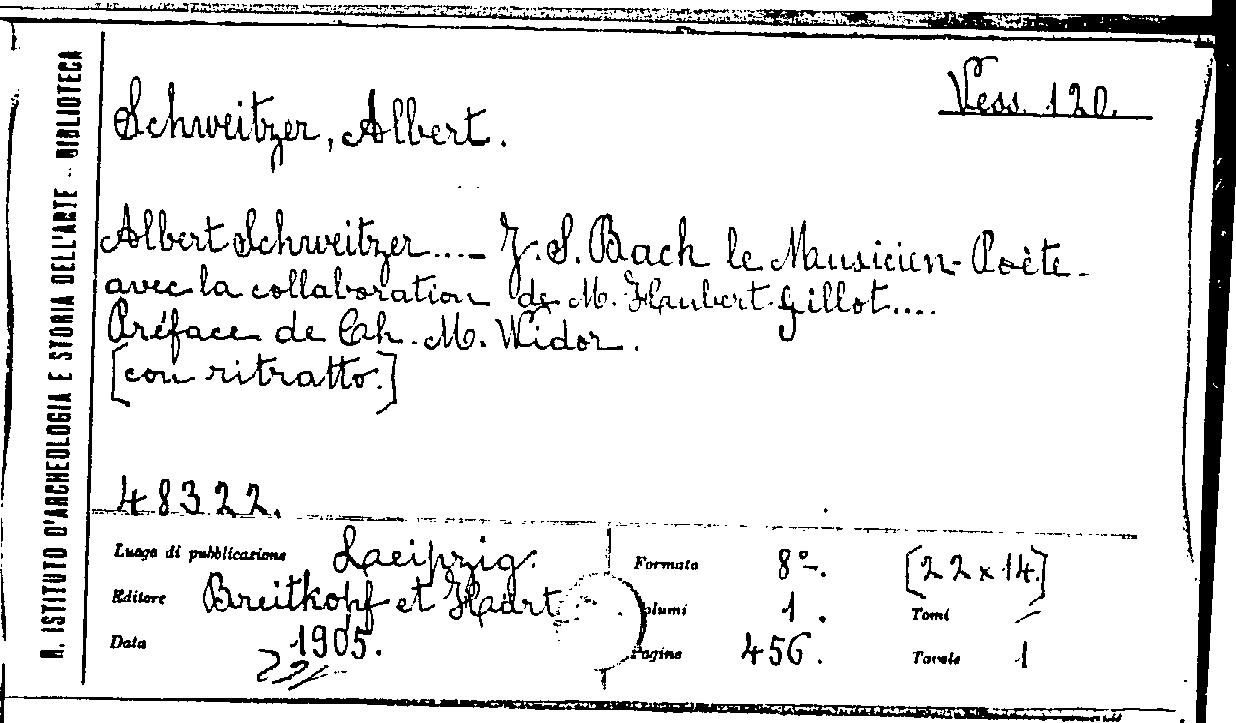 R. ISTITUTO D'ARCHEOLOGIA E STORIA DELL'ARTE - BIBLIOTECA
Vess. 120.
Schweitzer, Albert.
Albert Schweitzer.... - J. S. Bach le Musicien-Poète.
avec la collaboration de M. Haubert Gillot....
Préface de Ch. M. Widor.
[con ritratto.]
48322.
Luogo di pubblicazione Laeipzig.
Editore Breitkopf et Haart
Data 1905.
Formato 8º. [22 x 14]
Volumi 1. Tomi —
Pagine 456. Tavole 1